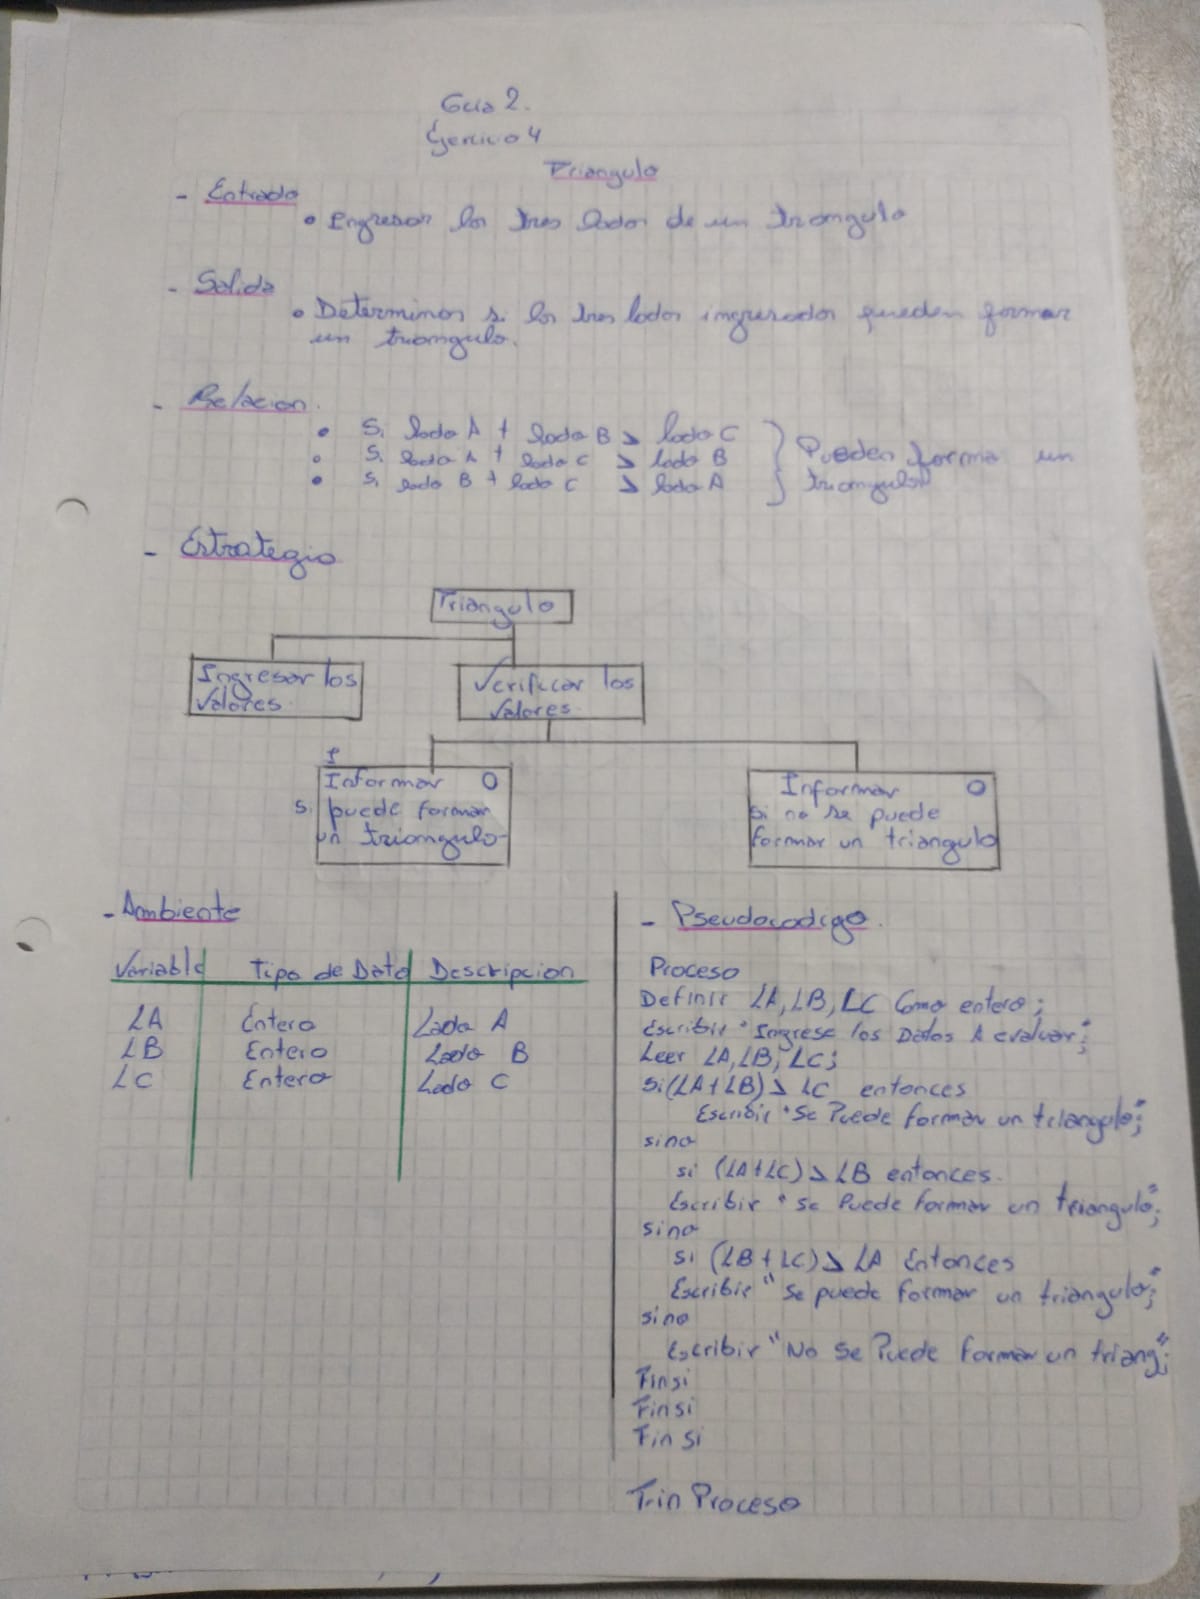 Guia 2.
Ejercicio 4
Triangulo
- Entrada
• Ingresar los tres lados de un triangulo
- Salida
• Determinar si los tres lados ingresados pueden formar
un triangulo.
- Relacion.
• Si lado A + lado B > lado C
• Si lado A + lado C > lado B
• Si lado B + lado C > lado A
Pueden forma un
triangulo
- Estrategia
Triangulo
Ingresar los
Valores.
Verificar los
Valores.
Informar O
Si puede formar
un triangulo
Informar O
Si no se puede
formar un triangulo
- Ambiente
Variable Tipo de Dato Descripcion
LA Entero Lado A
LB Entero Lado B
LC Entero Lado C
- Pseudocodigo.
Proceso
Definir LA, LB, LC Como entero;
Escribir "Ingrese los Datos A evaluar";
Leer LA, LB, LC;
Si (LA + LB) > LC entonces
Escribir "Se Puede formar un triangulo";
sino
si (LA + LC) > LB entonces.
Escribir "Se Puede formar un triangulo";
sino
si (LB + LC) > LA Entonces
Escribir "Se puede formar un triangulo";
sino
Escribir "No Se Puede formar un triang";
Finsi
Finsi
Fin si
Fin Proceso